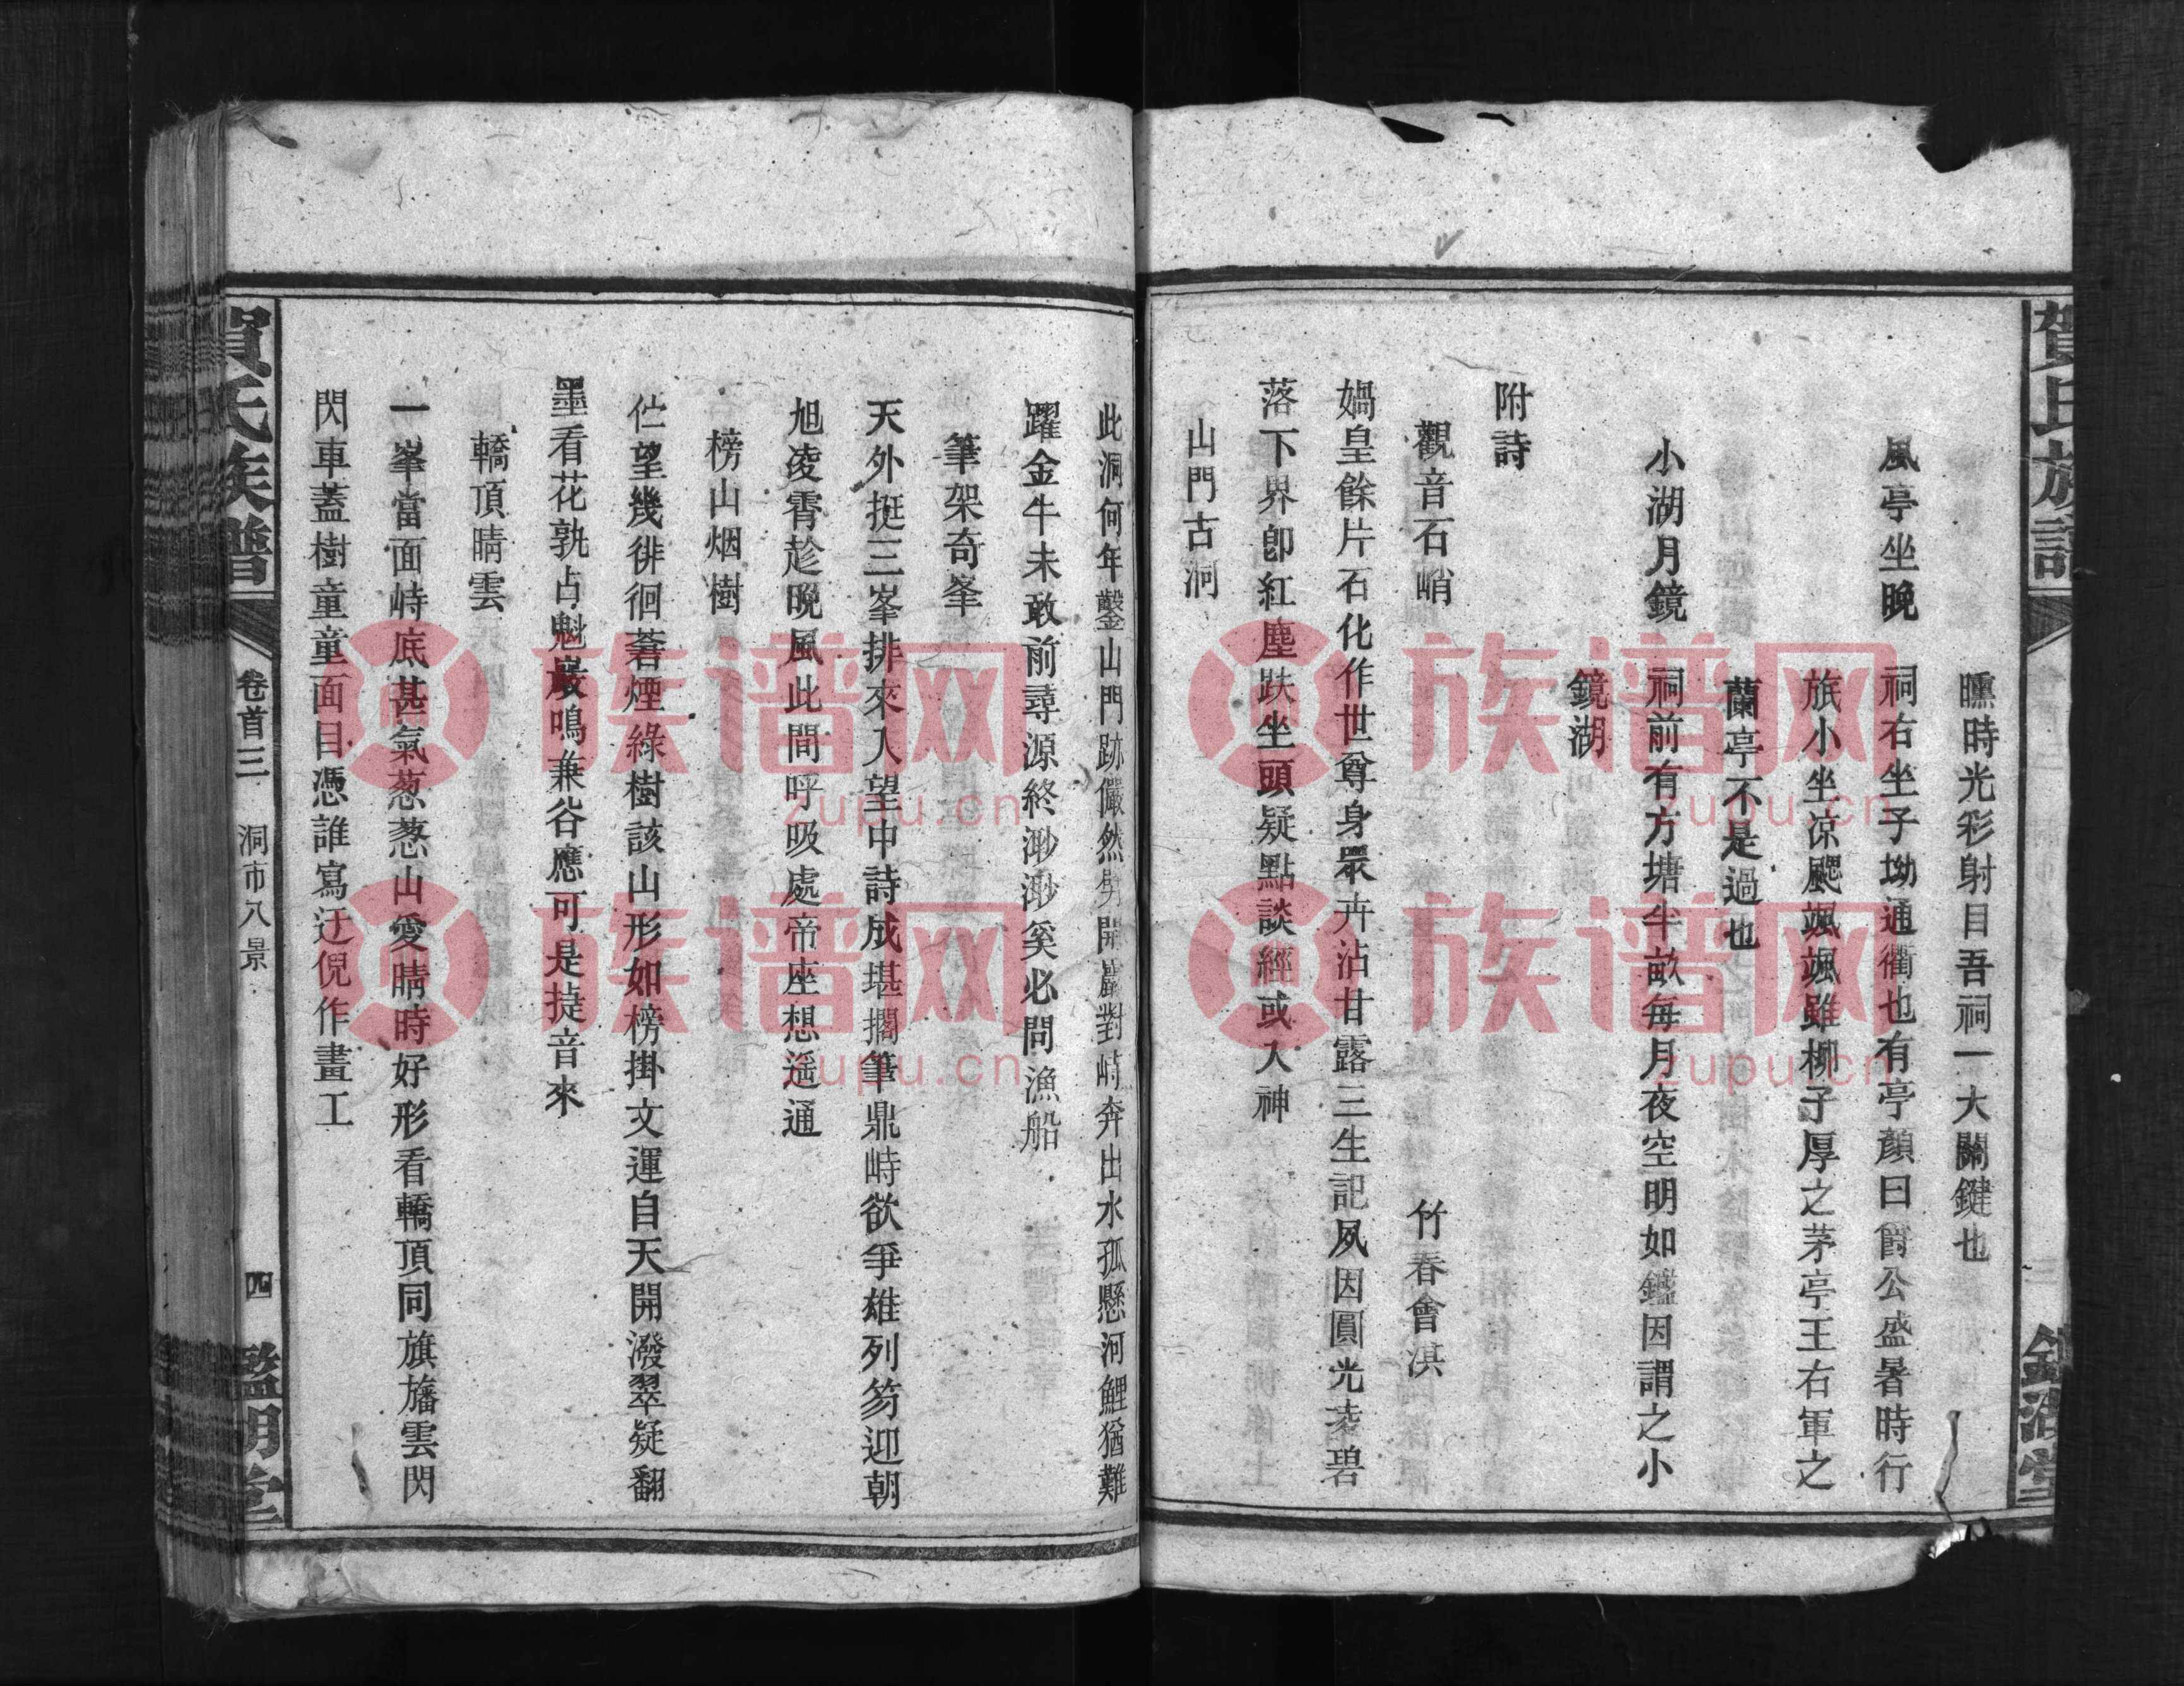 賀氏族譜
鑑湖堂
曛時光彩射目吾祠一大關鍵也
風亭坐晚 祠右坐子坳通衢也有亭顏曰爵公盛暑時行
旅小坐凉颸颯颯雖柳子厚之茅亭王右軍之
蘭亭不是過也
小湖月鏡 祠前有方塘半畝每月夜空明如鑑因謂之小
鏡湖
附詩
觀音石峭 竹春會淇
媧皇餘片石化作世尊身眾卉沾甘露三生記夙因圓光凌碧
落下界卽紅塵趺坐頭疑點談經或入神
山門古洞
此洞何年鑿山門跡儼然勢開嚴對峙奔出水孤懸河鯉猶難
躍金牛未敢前尋源終渺渺奚必問漁船
筆架奇峯
天外挺三峯排來入望中詩成堪擱筆鼎峙欲爭雄列笏迎朝
旭凌霄趁晚風此間呼吸處帝座想遙通
榜山烟樹
伫望幾徘徊蒼煙綠樹該山形如榜掛文運自天開潑翠疑翻
墨看花孰占魁巌鳴兼谷應可是㨗音來
轎頂晴雲
一峯當面峙底甚氣葱葱山愛晴時好形看轎頂同旗旛雲閃
閃車蓋樹童童面目憑誰寫迂倪作畫工
賀氏族譜
卷首三 洞市八景
四
鑑湖堂
族谱网 zupu.cn
族谱网 zupu.cn
族谱网 zupu.cn
族谱网 zupu.cn